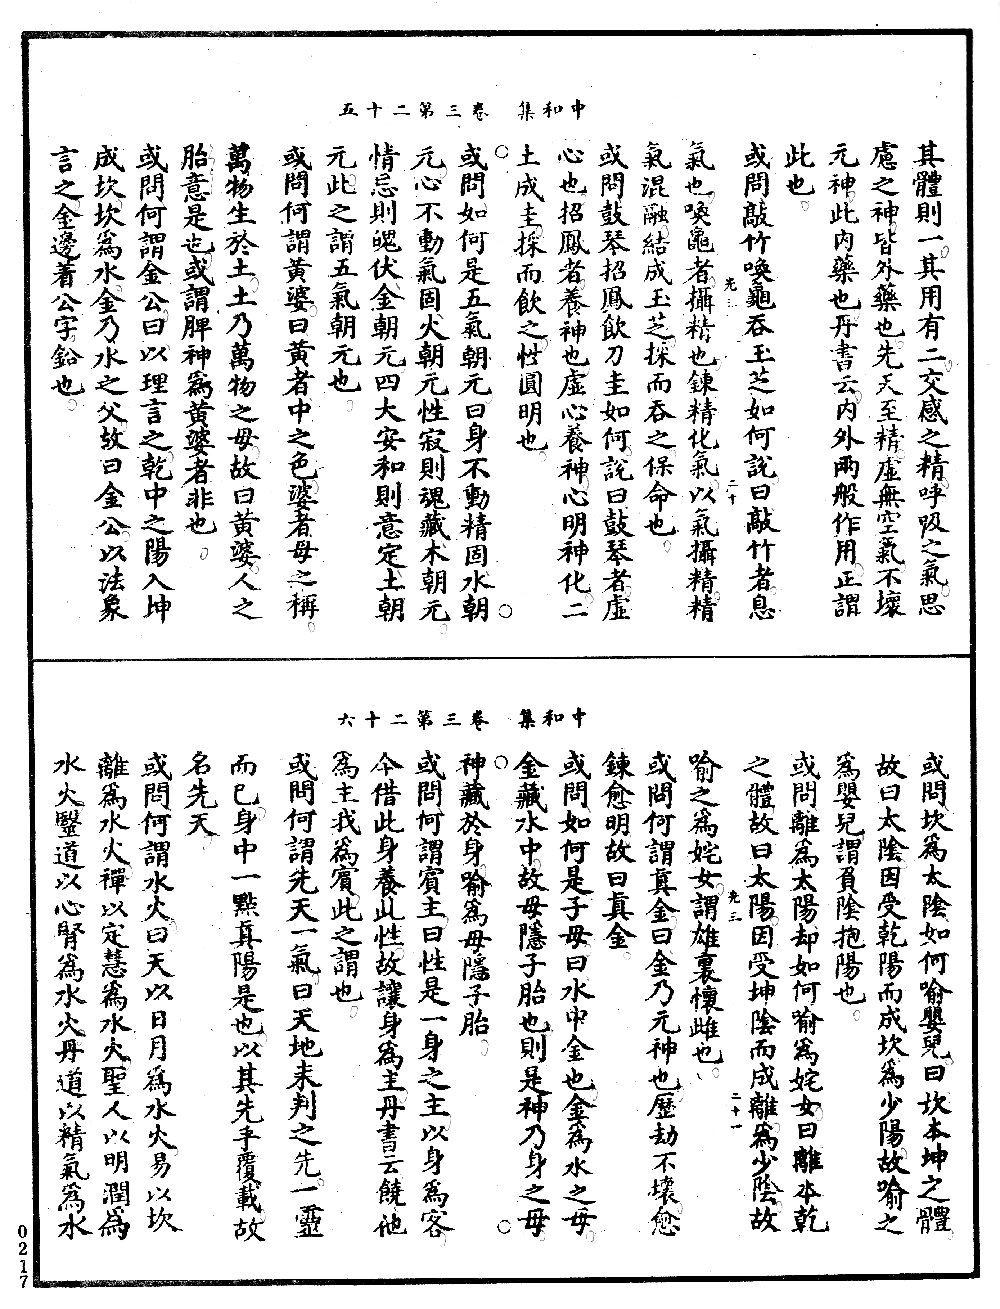 中和集　卷三第二十五
其體則一其用有二交感之精呼吸之氣思
慮之神皆外藥也先天至精虛無空氣不壞
元神此內藥也丹書云內外兩般作用正謂
此也
或問敲竹喚龜吞玉芝如何說曰敲竹者息
光三　二十
氣也喚龜者攝精也鍊精化氣以氣攝精精
氣混融結成玉芝採而吞之保命也
或問鼓琴招鳳飲刀圭如何說曰鼓琴者虛
心也招鳳者養神也虛心養神心明神化二
土成圭採而飲之性圓明也
或問如何是五氣朝元曰身不動精固水朝
元心不動氣固火朝元性寂則魂藏木朝元
情忘則魄伏金朝元四大安和則意定土朝
元此之謂五氣朝元也
或問何謂黃婆曰黃者中之色婆者母之稱
萬物生於土土乃萬物之母故曰黃婆人之
胎意是也或謂脾神爲黃婆者非也
或問何謂金公曰以理言之乾中之陽入坤
成坎坎爲水金乃水之父故曰金公以法象
言之金邊著公字鉛也
中和集　卷三第二十六
或問坎爲太陰如何喻嬰兒曰坎本坤之體
故曰太陰因受乾陽而成坎爲少陽故喻之
爲嬰兒謂負陰抱陽也
或問離爲太陽却如何喻爲姹女曰離本乾
之體故曰太陽因受坤陰而成離爲少陰故
喻之爲姹女謂雄裏懷雌也
光三　二十一
或問何謂真金曰金乃元神也歷劫不壞愈
鍊愈明故曰真金
或問如何是子母曰水中金也金爲水之母
金藏水中故母隱子胎也則是神乃身之母
神藏於身喻爲母隱子胎
或問何謂賓主曰性是一身之主以身爲客
今借此身養此性故讓身爲主丹書云饒他
爲主我爲賓此之謂也
或問何謂先天一氣曰天地未判之先一靈
而已身中一點真陽是也以其先乎覆載故
名先天
或問何謂水火曰天以日月爲水火易以坎
離爲水火禪以定慧爲水火聖人以明潤爲
水火醫道以心腎爲水火丹道以精氣爲水
0217